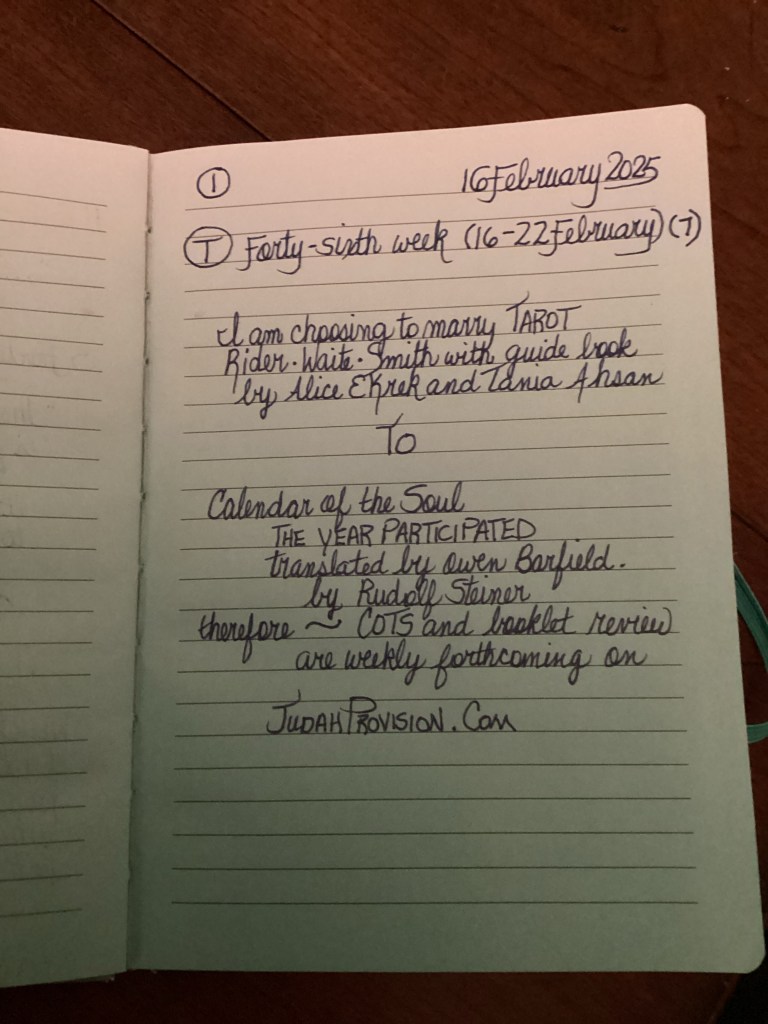 1
16 February 2025
T Forty-sixth week (16-22 February) (7)
I am choosing to marry TAROT
Rider·Waite·Smith with guide book
by Alice Ekrek and Tania Ahsan
To
Calendar of the Soul
THE YEAR PARTICIPATED
translated by Owen Barfield.
by Rudolf Steiner
therefore ~ COTS and booklet review
are weekly forthcoming on
JUDAHPROVISION.COM